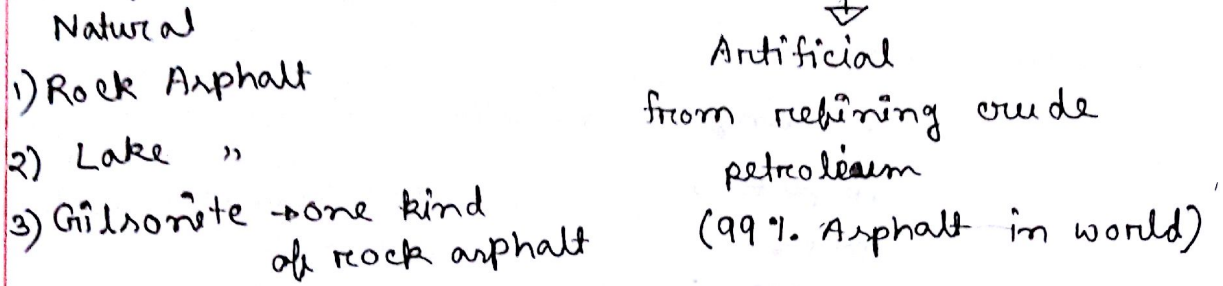 Natural
1) Rock Asphalt
2) Lake "
3) Gilsonite → one kind
of rock asphalt
Artificial
from refining crude
petroleum
(99% Asphalt in world)